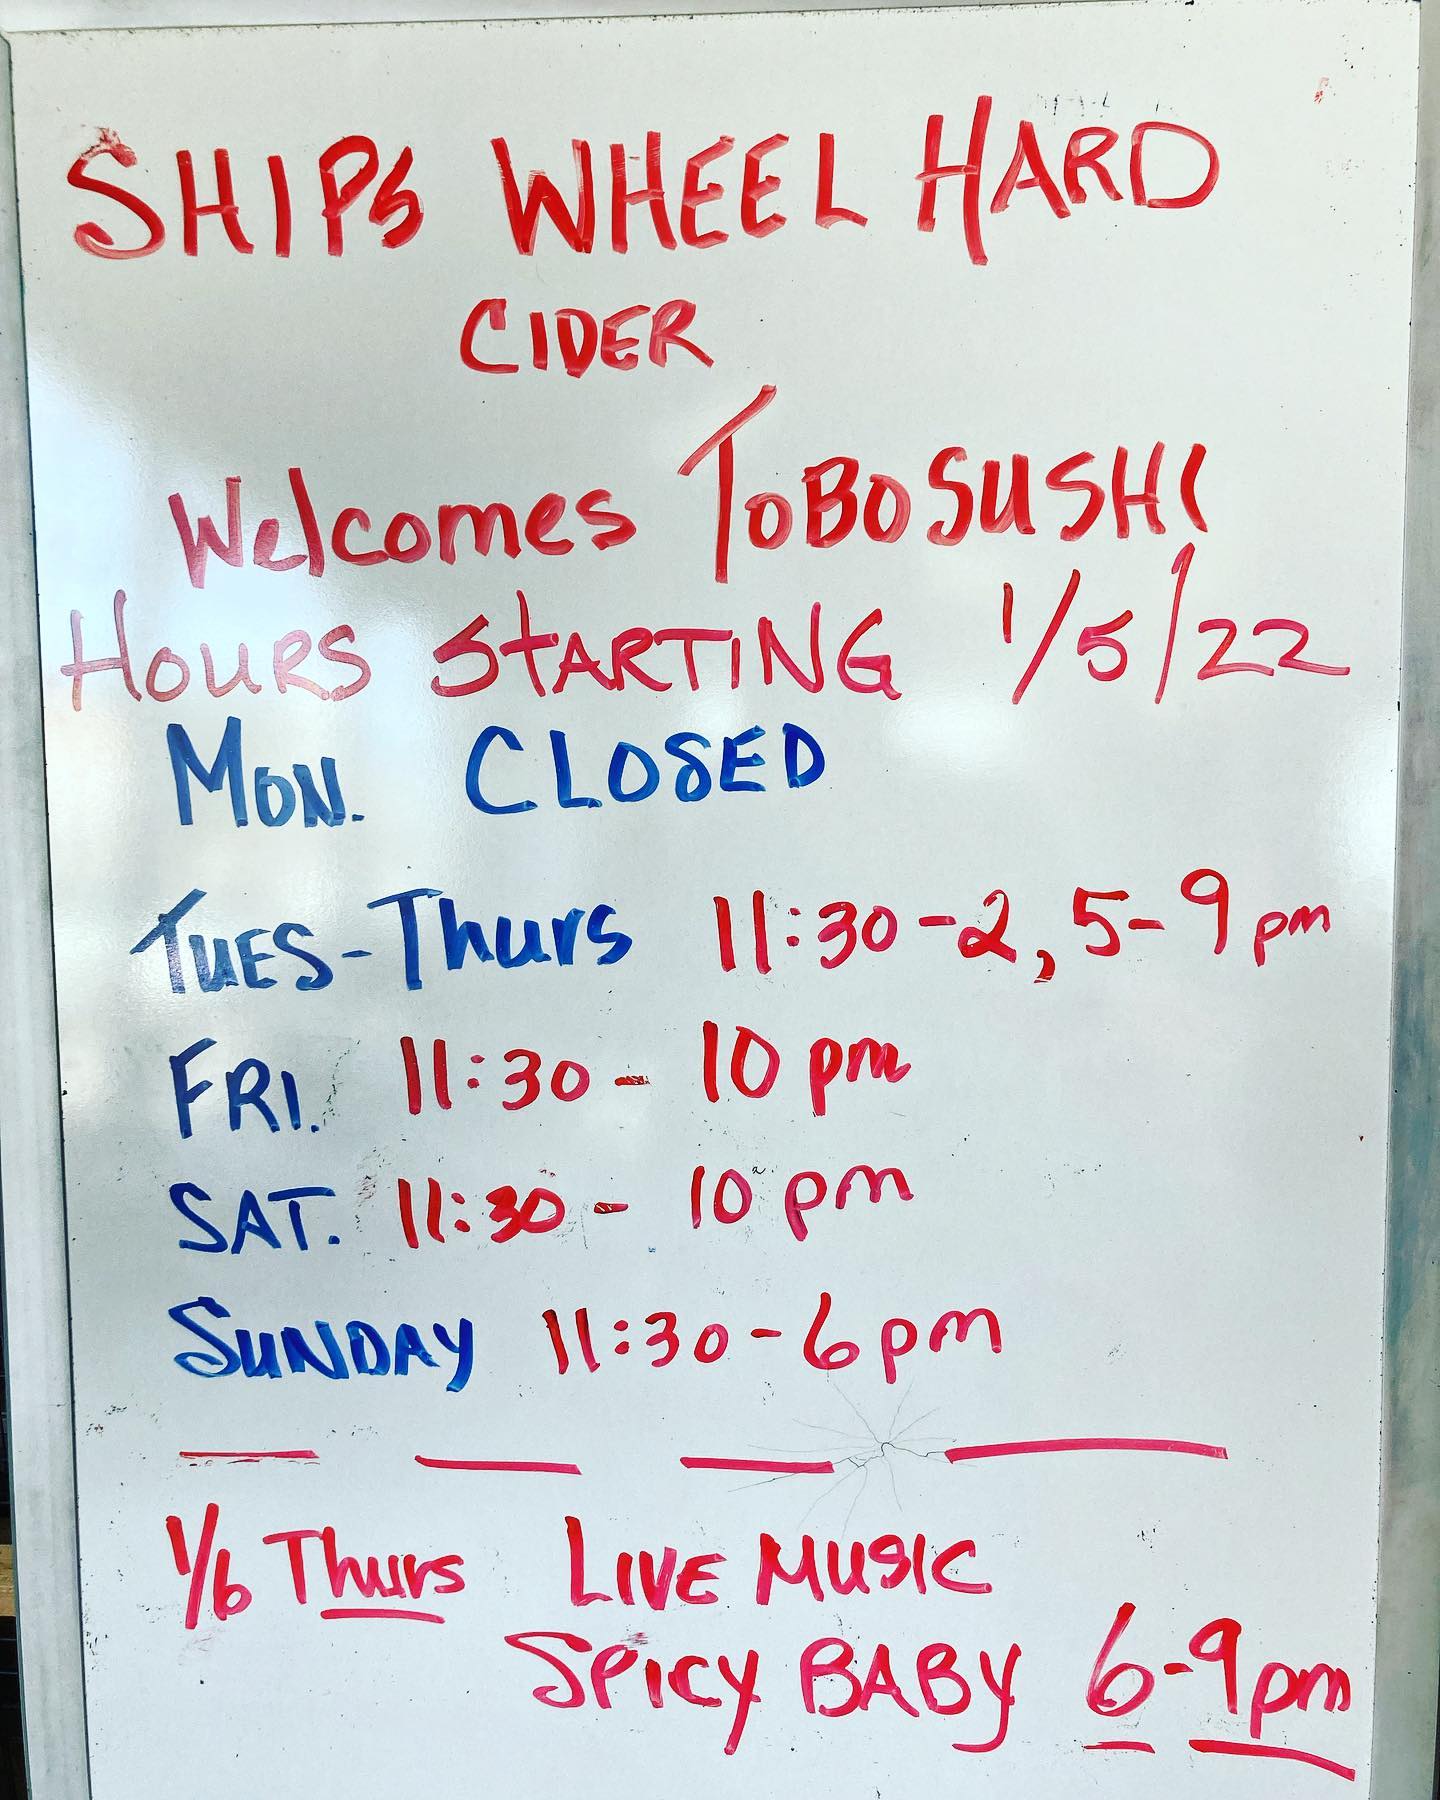 SHIPS WHEEL HARD
CIDER
Welcomes TOBO SUSHI
HOURS STARTING 1/5/22
MON. CLOSED
TUES-Thurs 11:30-2, 5-9pm
FRI. 11:30 - 10 pm
SAT. 11:30 - 10 pm
SUNDAY 11:30-6pm
1/6 Thurs LIVE MUSIC
SPICY BABY 6-9pm